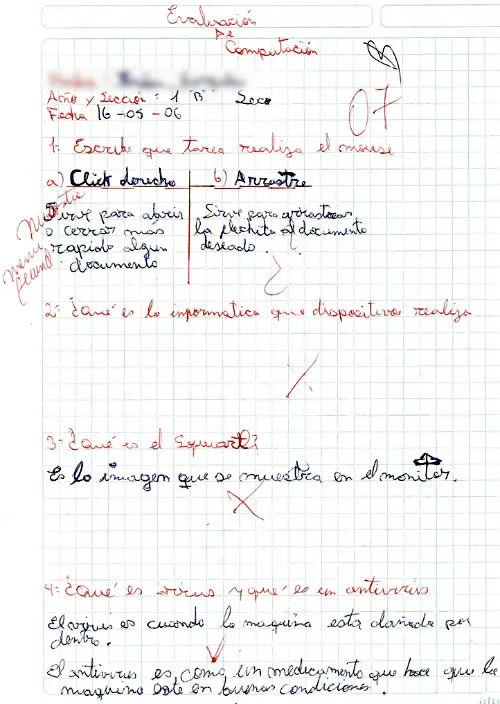 Evaluación
De
Computación
Año y Sección: 1 "B" Seco
Fecha 16-05-06
07
1: Escribe que tarea realiza el mouse
a) Click derecho b) Arrastre
Sirve para abrir
o cerrar mas
rapido algun
documento
Sirve para arrastrar
la flechita al documento
deseado.
Muestra
menu
2- ¿Qué es la informatica que dispositivos realiza
3- ¿Qué es el Software?
Es la imagen que se muestra en el monitor.
4: ¿Qué es virus y que es un antivirus
El virus es cuando la maquina esta dañada por
dentro.
El antivirus es como un medicamento que hace que la
maquina este en buenas condiciones.